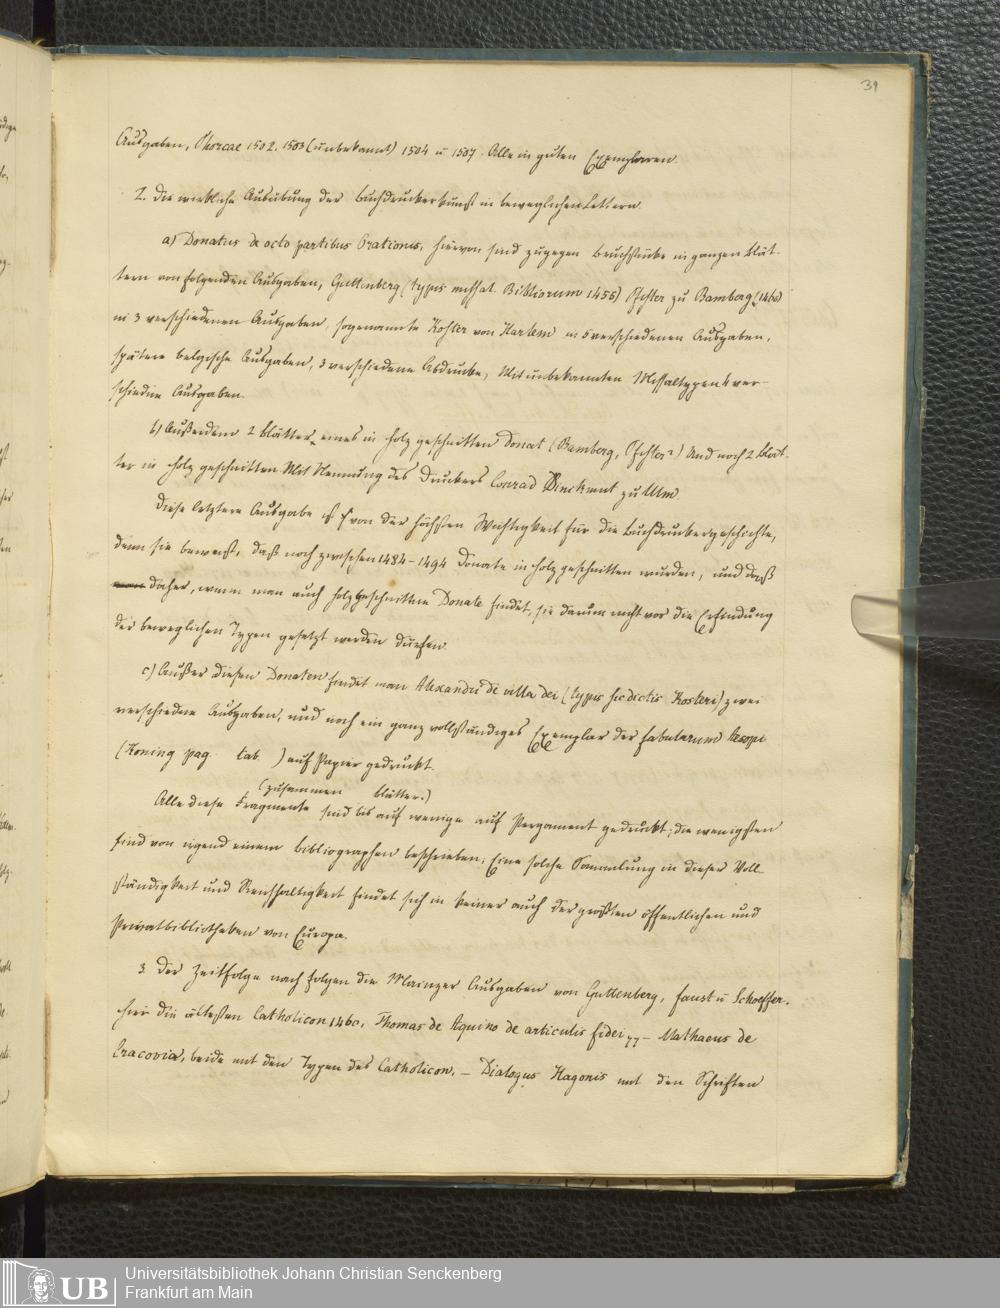 39
Ausgaben, Phorcae 1502. 1503 (unbekannt) 1504 u 1507. Alle in guten Exemplaren.
2. Die wirkliche Ausübung der Buchdruckerkunst in beweglichen Lettern.
a) Donatus de octo partibus Orationis, hievon sind zugegen Bruchstücke in ganzen Blät-
tern von folgenden Ausgaben, Guttenberg (typis Bibliorum 1455) Pfister zu Bamberg (1460)
in 3 verschiedenen Ausgaben, sogenannte Koster von Harlem in 5 verschiedenen Ausgaben,
spätere belgische Ausgaben, 3 verschiedene Abdrucke, Mit unbekannten Missaltypen 4 ver-
schiedne Ausgaben.
b) Außerdem 2 Blätter eines in Holz geschnitten Donat (Bamberg, Pfister?) Und noch 2 Blät-
ter in Holz geschnitten Mit Nennung des Druckers Conrad Dinckmut zu Ulm.
Diese letztere Ausgabe ist von der höchsten Wichtigkeit für die Buchdruckergeschichte,
denn sie beweist, daß noch zwischen 1484 – 1494 Donate in Holz geschnitten wurden, und daß
daher, wenn man auch holzgeschnittne Donate findet, sie darum nicht vor die Erfindung
der beweglichen Typen gesetzt werden dürfen.
c) Außer diesen Donaten findet man Alexandri de villa dei (typis sic dictis Kosteri) zwei
verschiedne Ausgaben, und noch ein ganz vollständiges Exemplar der fabularum Aesopi
(Koning pag. tab. ) auf Papier gedruckt.
(zusammen Blätter.)
Alle diese Fragmente sind bis auf wenige auf Pergament gedruckt; die wenigsten
sind von irgend einem Bibliographen beschrieben; Eine solche Sammlung in dieser Voll-
ständigkeit und Reichhaltigkeit findet sich in keiner auch der größten öffentlichen und
Privatbibliotheken von Europa.
3. Der Zeitfolge nach folgen die Mainzer Ausgaben von Guttenberg, Faust u Schoeffer.
hier die ältesten Catholicon 1460, Thomas de Aquino de articulis fidei – Mathaeus de
Cracovia, beide mit den Typen des Catholicon, – Dialogus Hagonis mit den Schriften
UB
Universitätsbibliothek Johann Christian Senckenberg
Frankfurt am Main